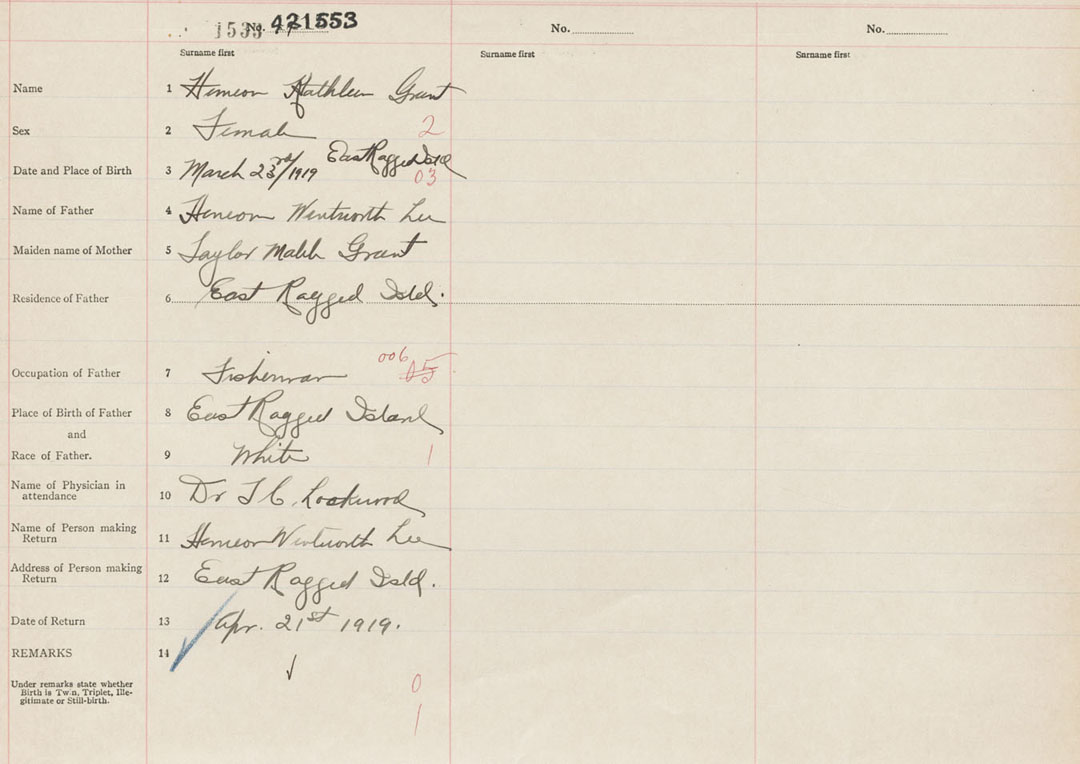 1533 No. 421553 No. No.
Surname first Surname first Surname first
Name 1 Hemeon Kathleen Grant
Sex 2 Female 2
Date and Place of Birth 3 March 23rd/1919 East Ragged Isld 03
Name of Father 4 Hemeon Wentworth Lee
Maiden name of Mother 5 Taylor Mabel Grant
Residence of Father 6 East Ragged Isld.
006
Occupation of Father 7 Fisherman
Place of Birth of Father 8 East Ragged Island
and
Race of Father. 9 White 1
Name of Physician in
attendance 10 Dr Lockwood
Name of Person making
Return 11 Hemeon Wentworth Lee
Address of Person making
Return 12 East Ragged Isld.
Date of Return 13 Apr. 21st 1919.
REMARKS 14
Under remarks state whether
Birth is Twin, Triplet, Ille-
gitimate or Still-birth.
0
1